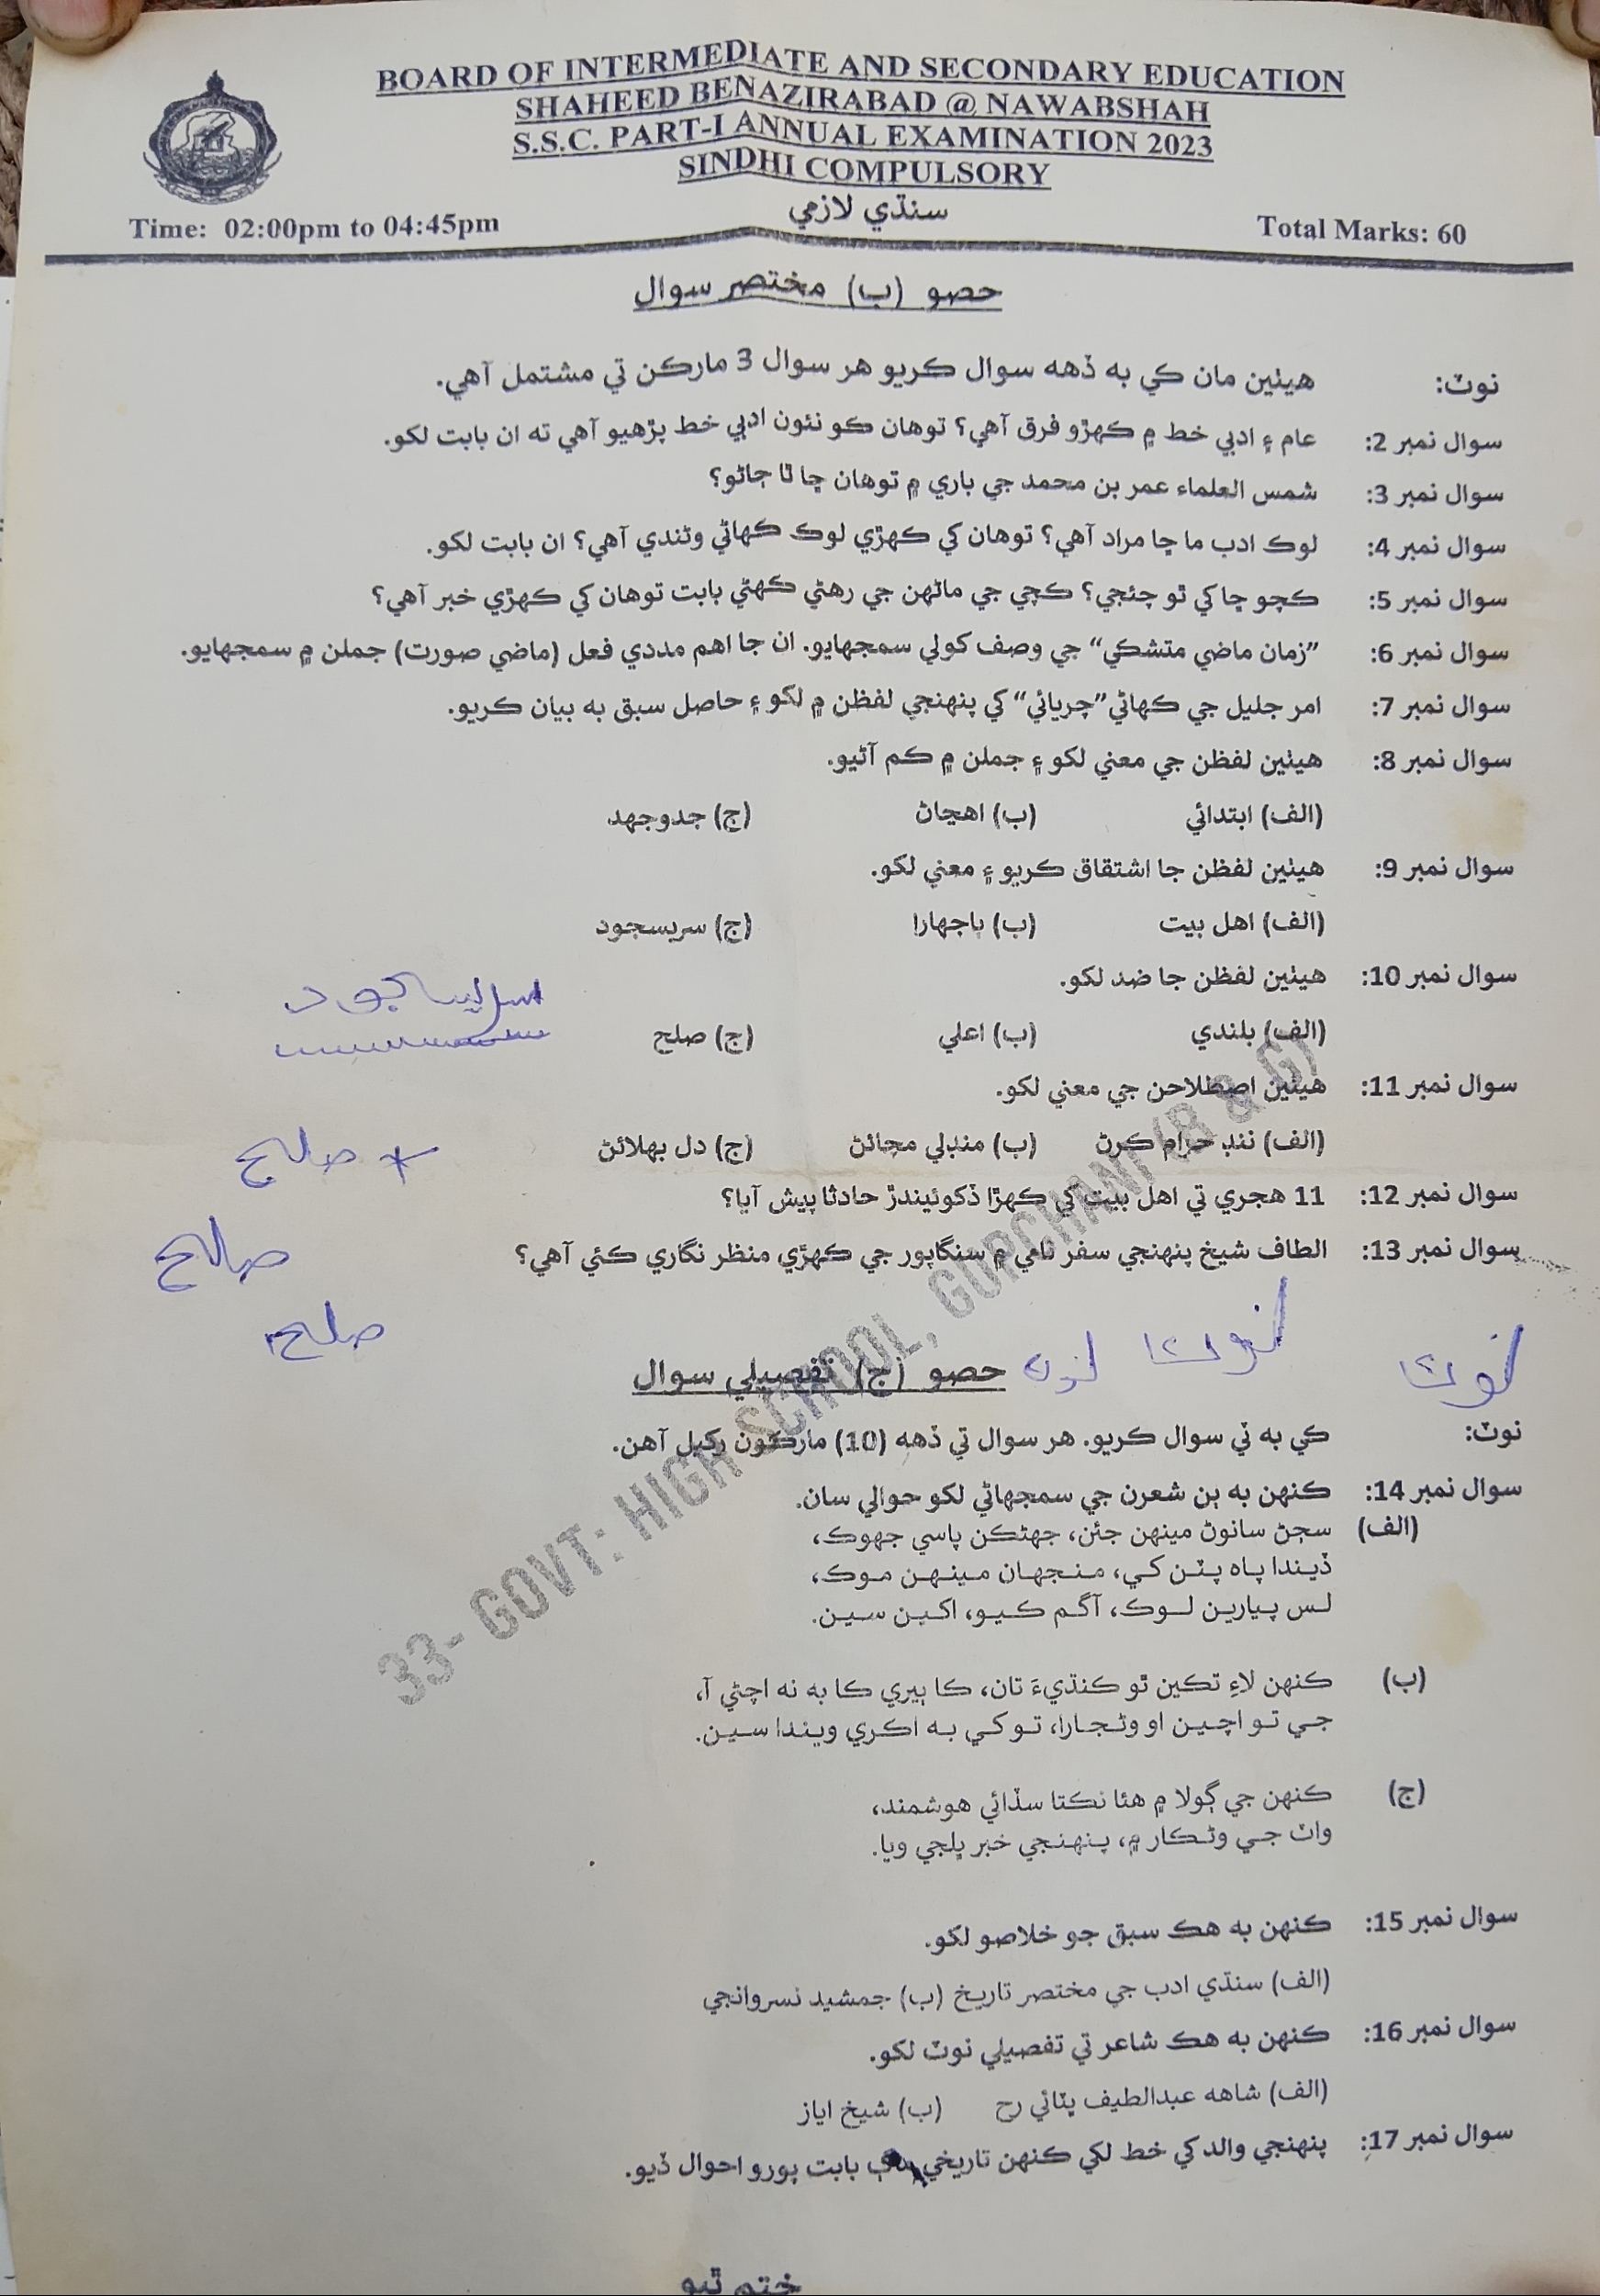 BOARD OF INTERMEDIATE AND SECONDARY EDUCATION
SHAHEED BENAZIRABAD @ NAWABSHAH
S.S.C. PART-I ANNUAL EXAMINATION 2023
SINDHI COMPULSORY
سنڌي لازمي
Time: 02:00pm to 04:45pm
Total Marks: 60
حصو (ب) مختصر سوال
نوٽ: هيٺين مان ڪي به ڏهه سوال ڪريو هر سوال 3 مارڪن تي مشتمل آهي.
سوال نمبر 2: عام ۽ ادبي خط ۾ ڪهڙو فرق آهي؟ توهان ڪو نئون ادبي خط پڙهيو آهي ته ان بابت لکو.
سوال نمبر 3: شمس العلماء عمر بن محمد جي باري ۾ توهان ڇا ٿا ڄاڻو؟
سوال نمبر 4: لوڪ ادب ما ڇا مراد آهي؟ توهان کي ڪهڙي لوڪ ڪهاڻي وڻندي آهي؟ ان بابت لکو.
سوال نمبر 5: ڪڇو ڇا کي ٿو چئجي؟ ڪڇي جي ماڻهن جي رهڻي ڪهڻي بابت توهان کي ڪهڙي خبر آهي؟
سوال نمبر 6: ”زمان ماضي متشڪي“ جي وصف کولي سمجهايو. ان جا اهم مددي فعل (ماضي صورت) جملن ۾ سمجهايو.
سوال نمبر 7: امر جليل جي ڪهاڻي ”چريائي“ کي پنهنجي لفظن ۾ لکو ۽ حاصل سبق به بيان ڪريو.
سوال نمبر 8: هيٺين لفظن جي معني لکو ۽ جملن ۾ ڪم آڻيو.
(الف) ابتدائي (ب) اهڃاڻ (ج) جدوجهد
سوال نمبر 9: هيٺين لفظن جا اشتقاق ڪريو ۽ معني لکو.
(الف) اهل بيت (ب) ٻاجهارا (ج) سربسجود
سوال نمبر 10: هيٺين لفظن جا ضد لکو.
(الف) بلندي (ب) اعلي (ج) صلح
سوال نمبر 11: هيٺين اصطلاحن جي معني لکو.
(الف) ننڊ حرام ڪرڻ (ب) منڊلي مچائڻ (ج) دل بهلائڻ
صالح
سوال نمبر 12: 11 هجري تي اهل بيت کي ڪهڙا ڏکوئيندڙ حادثا پيش آيا؟
سوال نمبر 13: الطاف شيخ پنهنجي سفر نامي ۾ سنگاپور جي ڪهڙي منظر نگاري ڪئي آهي؟
صالح
صلح
حصو (ج) تفصيلي سوال
نوٽ: ڪي به ٽي سوال ڪريو. هر سوال تي ڏهه (10) مارڪون رکيل آهن.
سوال نمبر 14: ڪنهن به ٻن شعرن جي سمجهاڻي لکو حوالي سان.
(الف) سڄڻ سانوڻ مينهن جئن، جهڻڪن پاسي جهوڪ،
ڏيندا پاه پٽن کي، منجهان مينهن موڪ،
لس پيارين لوڪ، آگم ڪيو، اکين سين.
(ب) ڪنهن لاءِ تڪين ٿو ڪنڌيءَ تان، ڪا ٻيڙي ڪا به نه اچڻي آ،
جي تو اچين او وڻجارا، تو کي به اڪري ويندا سين.
(ج) ڪنهن جي ڳولا ۾ هئا نڪتا سڏائي هوشمند،
واٽ جي وڻڪار ۾، پنهنجي خبر ڀلجي ويا.
سوال نمبر 15: ڪنهن به هڪ سبق جو خلاصو لکو.
(الف) سنڌي ادب جي مختصر تاريخ (ب) جمشيد نسروانجي
سوال نمبر 16: ڪنهن به هڪ شاعر تي تفصيلي نوٽ لکو.
(الف) شاهه عبدالطيف ڀٽائي رح (ب) شيخ اياز
سوال نمبر 17: پنهنجي والد کي خط لکي ڪنهن تاريخي بابت پورو احوال ڏيو.
ختم ٿيو
33- GOVT: HIGH SCHOOL, GUPCHANI (B & G)